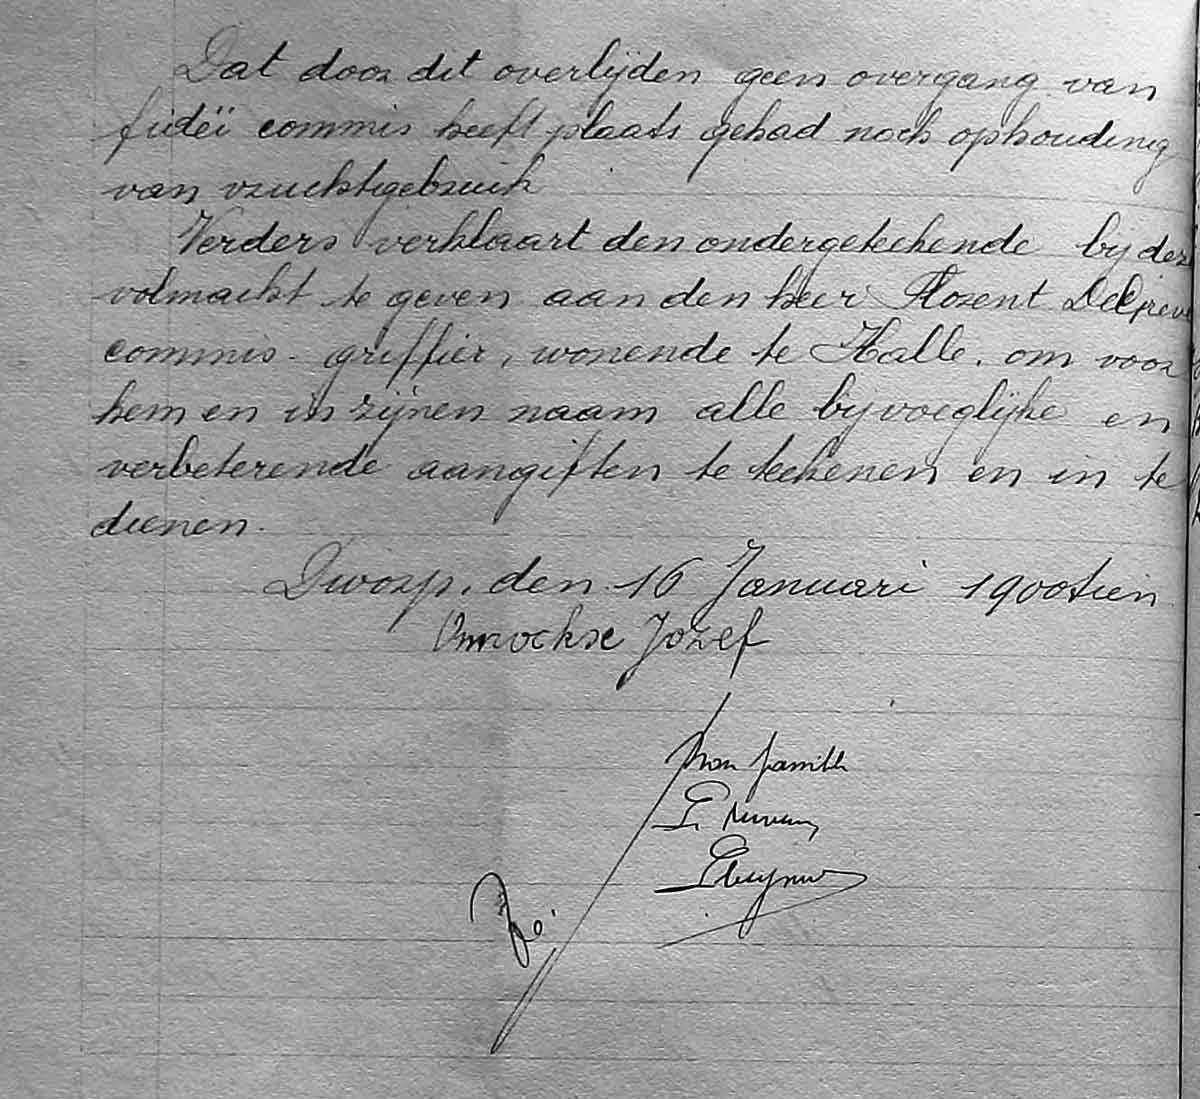 Dat door dit overlijden geen overgang van
fideï commis heeft plaats gehad noch ophouding
van vruchtgebruik
Verders verklaart den ondergeteekende bij dez
volmacht te geven aan den heer Florent
commis-griffier, wonende te Halle, om voor
hem en in zijnen naam alle bijvoeglijke en
verbeterende aangiften te teekenen en in te
dienen.
Dworp, den 16 Januari 19ootien
Jozef